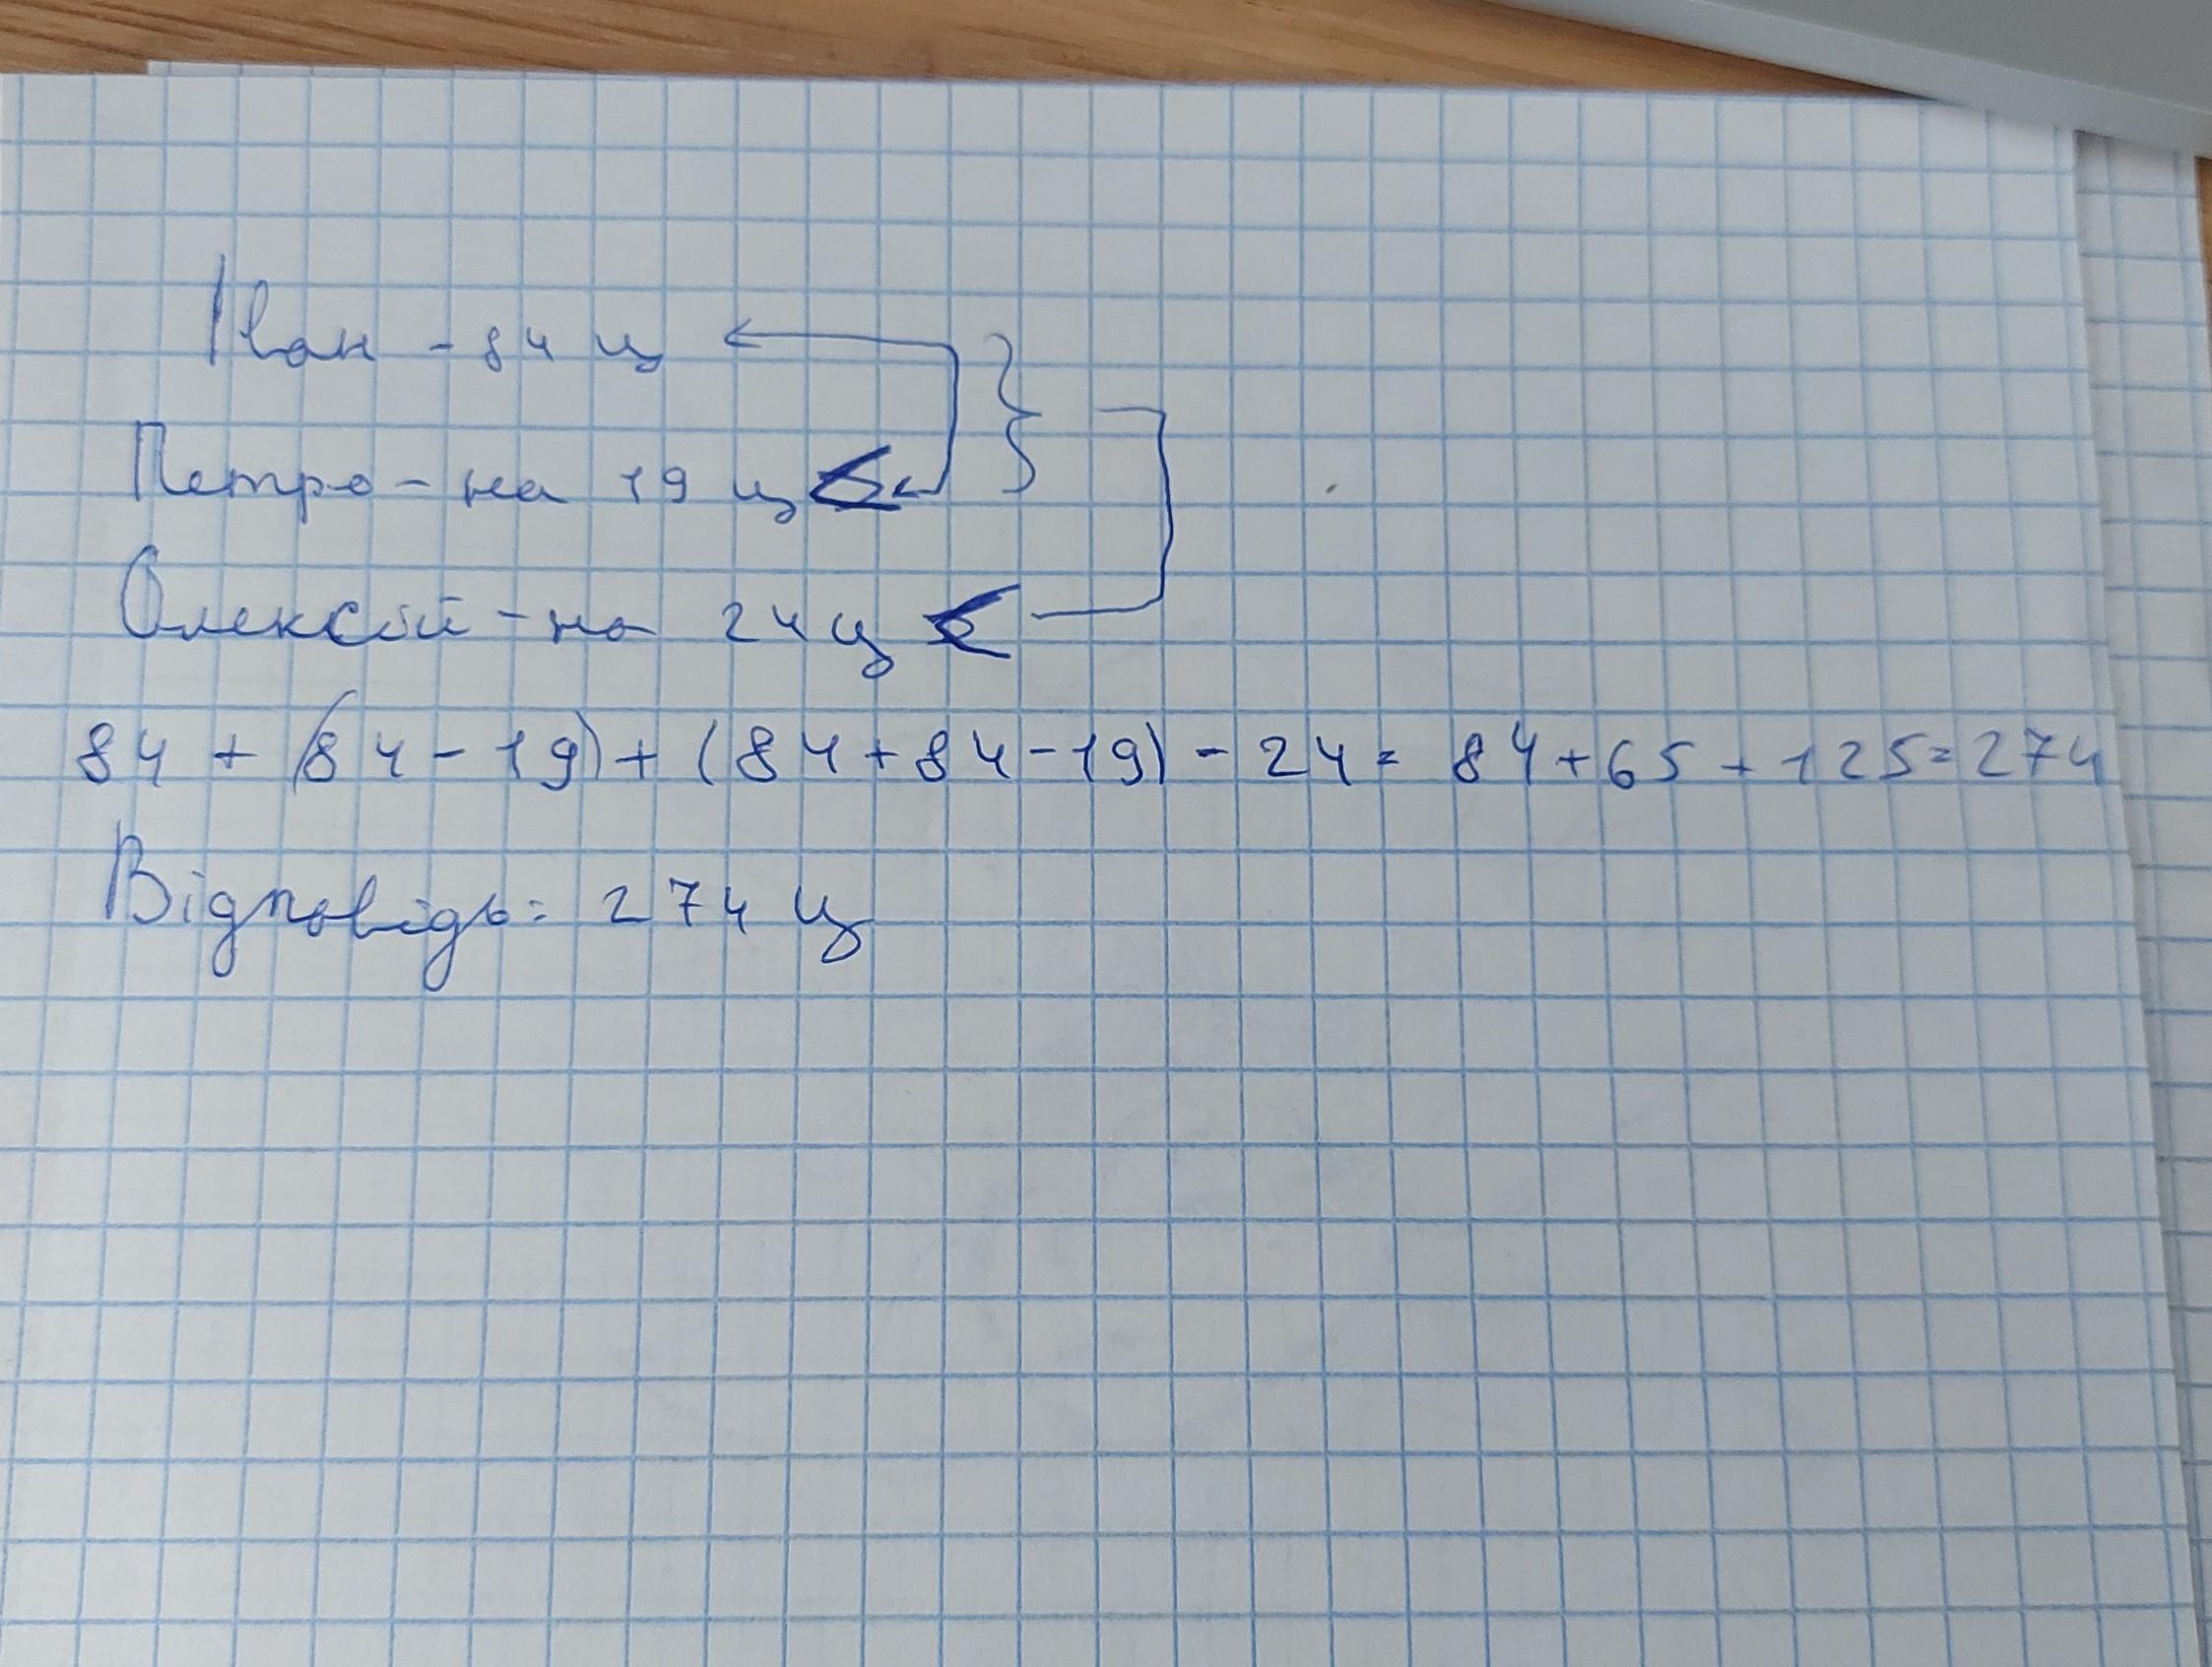 Іван - 84 ц
Петро - на 19 ц <
Олексій - на 24 ц <
84 + (84 - 19) + (84 + 84 - 19) - 24 = 84 + 65 + 125 = 274
Відповідь: 274 ц